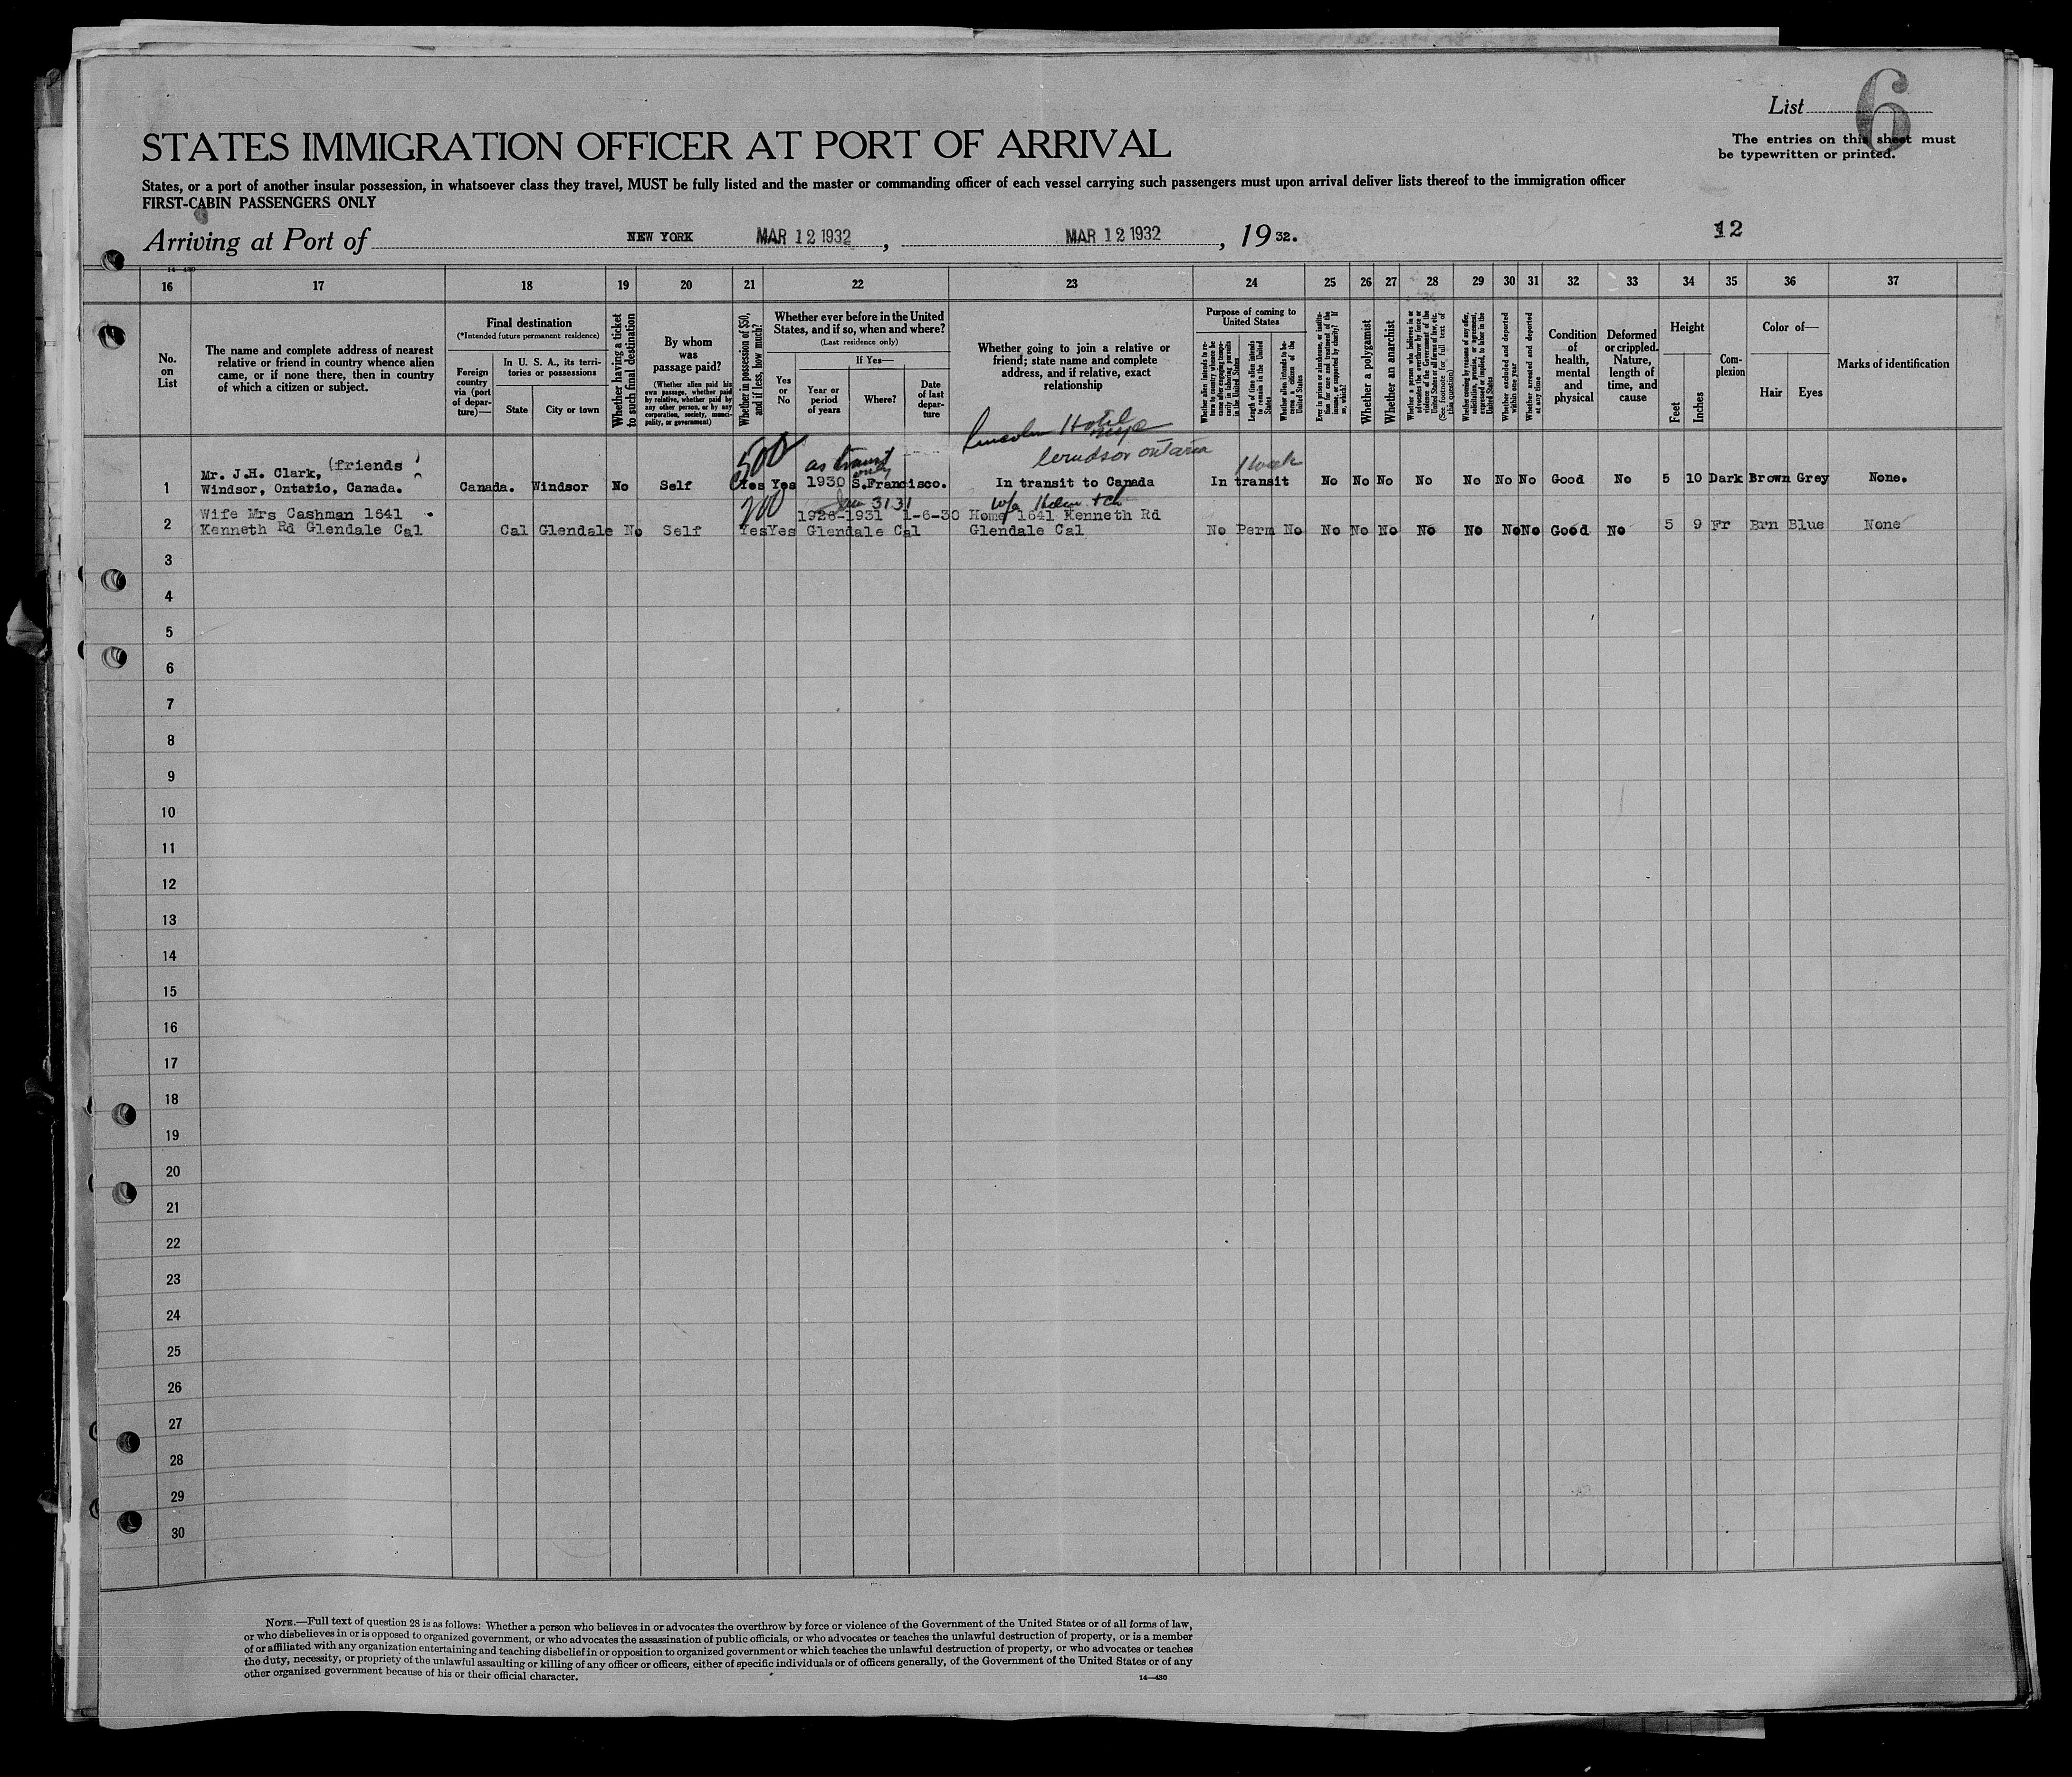 List 6
STATES IMMIGRATION OFFICER AT PORT OF ARRIVAL
The entries on this sheet must
be typewritten or printed.
States, or a port of another insular possession, in whatsoever class they travel, MUST be fully listed and the master or commanding officer of each vessel carrying such passengers must upon arrival deliver lists thereof to the immigration officer
FIRST-CABIN PASSENGERS ONLY
Arriving at Port of NEW YORK MAR 12 1932, MAR 12 1932, 1932.
12
14—430
16 17 18 19 20 21 22 23 24 25 26 27 28 29 30 31 32 33 34 35 36 37
No. on List
The name and complete address of nearest
relative or friend in country whence alien
came, or if none there, then in country
of which a citizen or subject.
Final destination
(*Intended future permanent residence)
Foreign country via (port of departure)—
In U. S. A., its territories or possessions
State
City or town
Whether having a ticket to such final destination
By whom was passage paid?
(Whether alien paid his own passage, whether paid by relative, whether paid by any other person, or by any corporation, society, municipality, or government)
Whether in possession of $50, and if less, how much?
Whether ever before in the United States, and if so, when and where?
(Last residence only)
Yes or No
If Yes—
Year or period of years
Where?
Date of last departure
Whether going to join a relative or
friend; state name and complete
address, and if relative, exact
relationship
Purpose of coming to United States
Whether alien intends to return to country whence he came after engaging temporarily in laboring pursuits in the United States
Length of time alien intends to remain in the United States
Whether alien intends to become a citizen of the United States
Ever in prison or almshouse, or institution for care and treatment of the insane, or supported by charity? If so, which?
Whether a polygamist
Whether an anarchist
Whether a person who believes in or advocates the overthrow by force or violence of the Government of the United States or all forms of law, etc. (See footnote for full text of this question)
Whether coming by reasons of any offer, solicitation, promise, or agreement, expressed or implied, to labor in the United States
Whether excluded and deported within one year
Whether arrested and deported at any time
Condition of health, mental and physical
Deformed or crippled. Nature, length of time, and cause
Height
Feet
Inches
Complexion
Color of—
Hair
Eyes
Marks of identification
500 as transit only Lincoln Hotel
Windsor Ontario 1 week
Mr. J.H. Clark, (friends
1 Windsor, Ontario, Canada. Canada. Windsor No Self Yes Yes 1930 S.Francisco. In transit to Canada In transit No No No No No No No Good No 5 10 Dark Brown Grey None.
200 31 31 wfe Helen + ch
Wife Mrs Cashman 1641 1926-1931 1-6-30 Home 1641 Kenneth Rd
2 Kenneth Rd Glendale Cal Cal Glendale No Self Yes Yes Glendale Cal Glendale Cal No Perm No No No No No No No No Good No 5 9 Fr Brn Blue None
3
4
5
6
7
8
9
10
11
12
13
14
15
16
17
18
19
20
21
22
23
24
25
26
27
28
29
30
NOTE.—Full text of question 28 is as follows: Whether a person who believes in or advocates the overthrow by force or violence of the Government of the United States or of all forms of law,
or who disbelieves in or is opposed to organized government, or who advocates the assassination of public officials, or who advocates or teaches the unlawful destruction of property, or is a member
of or affiliated with any organization entertaining and teaching disbelief in or opposition to organized government or which teaches the unlawful destruction of property, or who advocates or teaches
the duty, necessity, or propriety of the unlawful assaulting or killing of any officer or officers, either of specific individuals or of officers generally, of the Government of the United States or of any
other organized government because of his or their official character.
14—430